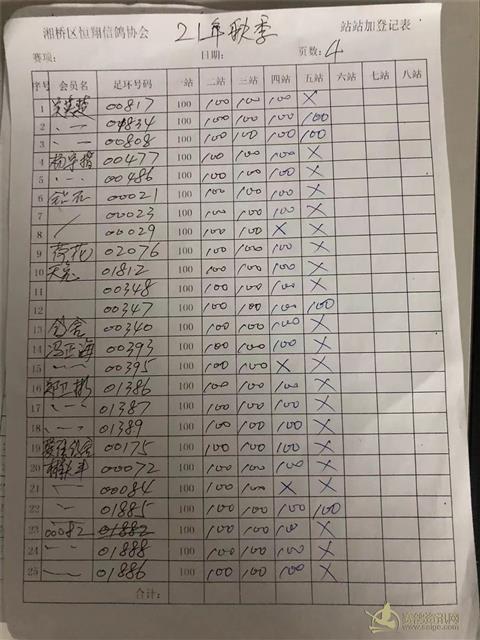 湘桥区恒翔信鸽协会 21年秋季 站站加登记表
赛项: 日期: 页数: 4
序号 会员名 足环号码 一站 二站 三站 四站 五站 六站 七站 八站
1 00817 100 100 100 100 X
2 〃 04834 100 100 100 100 100
3 〃 00808 100 100 100 100 100
4 00477 100 100 100 100 X
5 〃 00486 100 100 100 100 X
6 00021 100 100 100 100 X
7 00023 100 100 100 100 X
8 00029 100 100 100 X X
9 荷花 02076 100 100 100 100 X
10 01812 100 100 100 100 X
11 00348 100 100 100 100 X
12 00347 100 100 100 100 100
13 00340 100 100 100 100 X
14 冯正海 00393 100 100 100 100 X
15 〃 00395 100 100 100 X X
16 郑卫彬 01386 100 100 100 100 X
17 〃 01387 100 100 100 100 X
18 〃 01389 100 100 100 100 X
19 00175 100 100 100 100 X
20 00072 100 100 100 100 X
21 00084 100 100 100 X X
22 01885 100 100 100 100 100
23 00082 01882 100 100 100 100 X
24 01888 100 100 100 100 X
25 01886 100 100 100 100 X
合计: